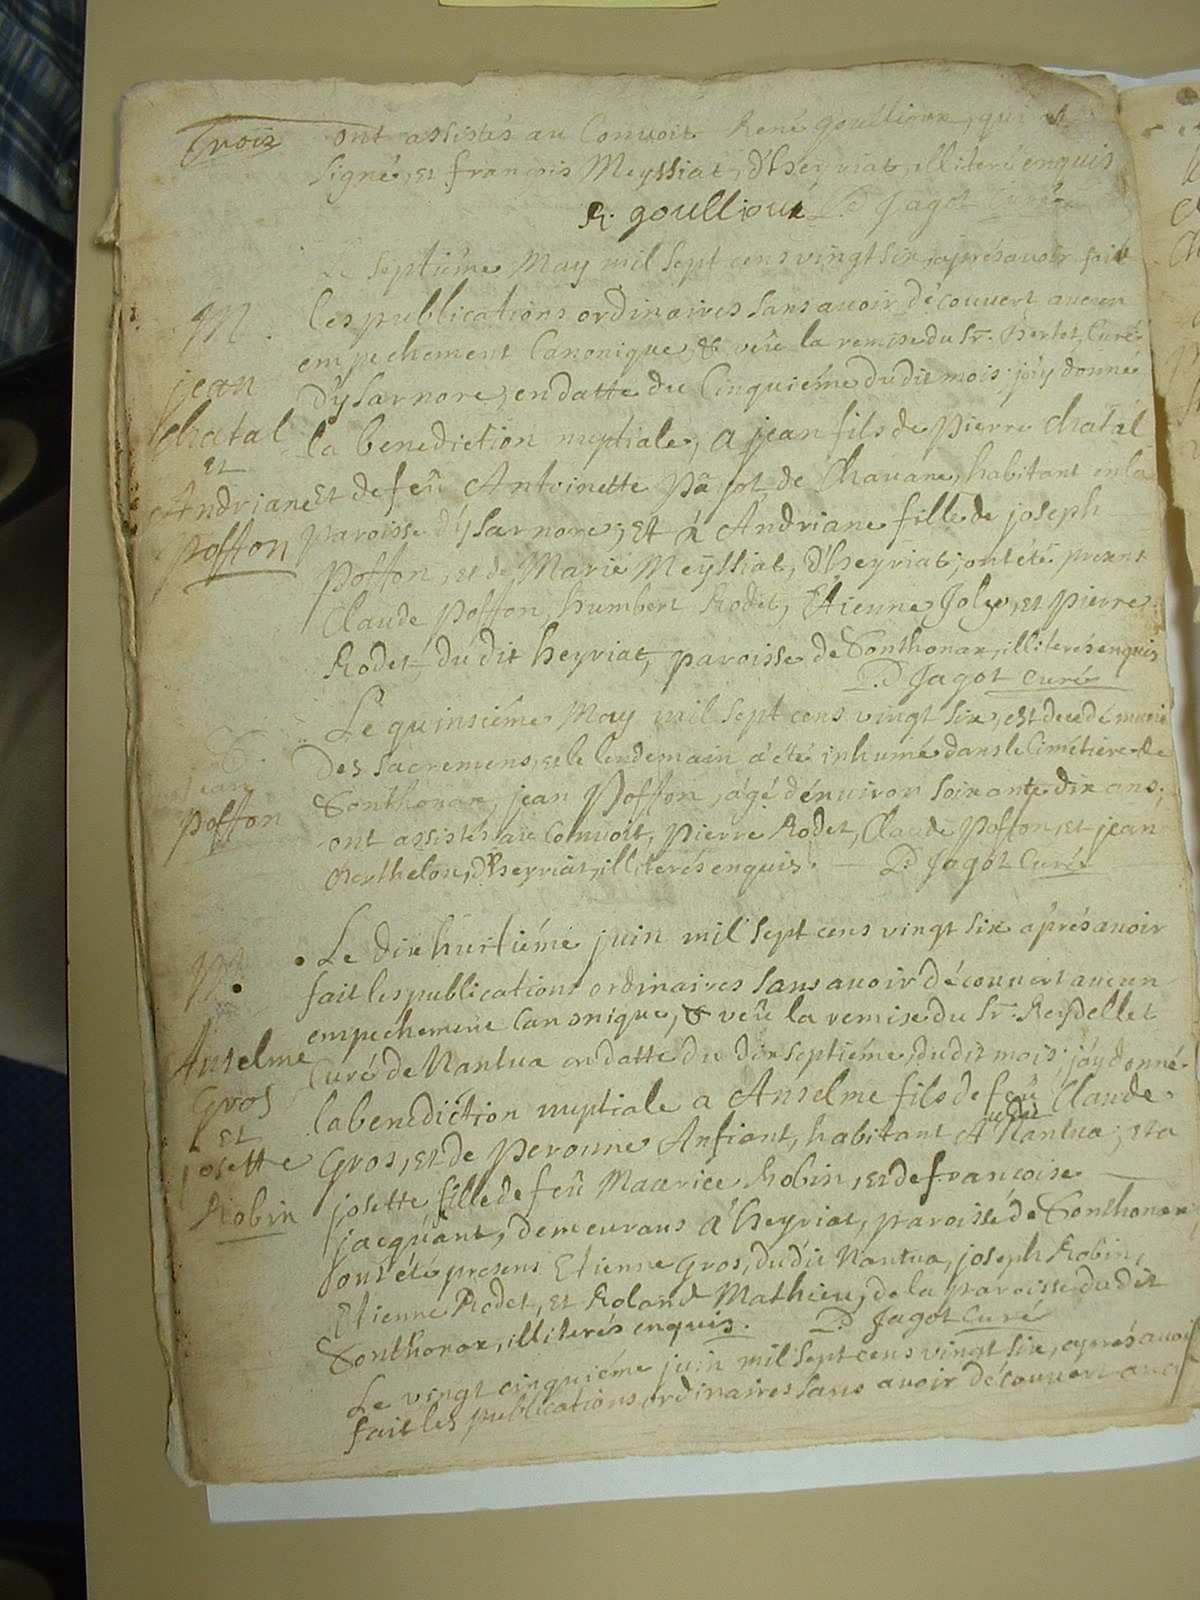 Trois
ont assistés au Convoit René goullioux, qui a
signé, et françois Meyssiat, d'heyriat, illiteré enquis
R. goullioux P.D Jagot Curé
Le septiéme May mil sept cens vingt six, aprés avoir fait
M.
les publications ordinaires sans avoir découvert aucun
empechement Canonique, & veü la remise du Sr. hertet, Curé
jean
d'ysarnore, en datte du Cinquiéme dudit mois; j'ay donné
chatal
la benediction nuptiale, a jean fils de pierre chatal
et
Andriane
et de feü Antoinette pajot de Chavane, habitant en la
poffon
paroisse d'ysarnore; et à Andriane fille de joseph
poffon, et de Marie Meyssiat, d'heyriat; ont été presens
Claude poffon, humbert Rodet, Etienne Joly, et pierre
Rodet, dudit heyriat, paroisse de Sonthonax, illiterés enquis
P.D Jagot Curé
Le quinsiéme May mil sept cens vingt six, est decedé muni
des sacremens, et le lendemain a été inhumé dans le Cimétiere de
jean
poffon
Sonthonax, jean poffon, agé d'environ soixante dix ans;
ont assistés au Convoit, pierre Rodet, Claude poffon, et jean
Berthelon, d'heyriat, illiterés enquis. P.D Jagot Curé
M.
Le dix huitiéme juin mil sept cens vingt six aprés avoir
fait les publications ordinaires sans avoir découvert aucun
empéchement Canonique, & veü la remise du Sr. Reydellet
Anselme
Curé de Nantua en datte du dix septiéme dudit mois; j'ay donné
Gros
la benediction nuptiale a Anselme fils de feü Claude
et
Gros, et de peronne Anfiant, habitant A Nantua; et a
josette
Robin
josette fille de feü Maurice Robin, et de francoise
jacquant, demeurans a heyriat, paroisse de Sonthonax
ont été presens Etienne Gros, dudit Nantua, joseph Robin,
Etienne Rodet, et Roland Mathieu, de la paroisse dudit
Sonthonax, illiterés enquis. P.D Jagot Curé
Le vingt cinquiéme juin mil sept cens vingt six, aprés avoir
fait les publications ordinaires sans avoir découvert aucun